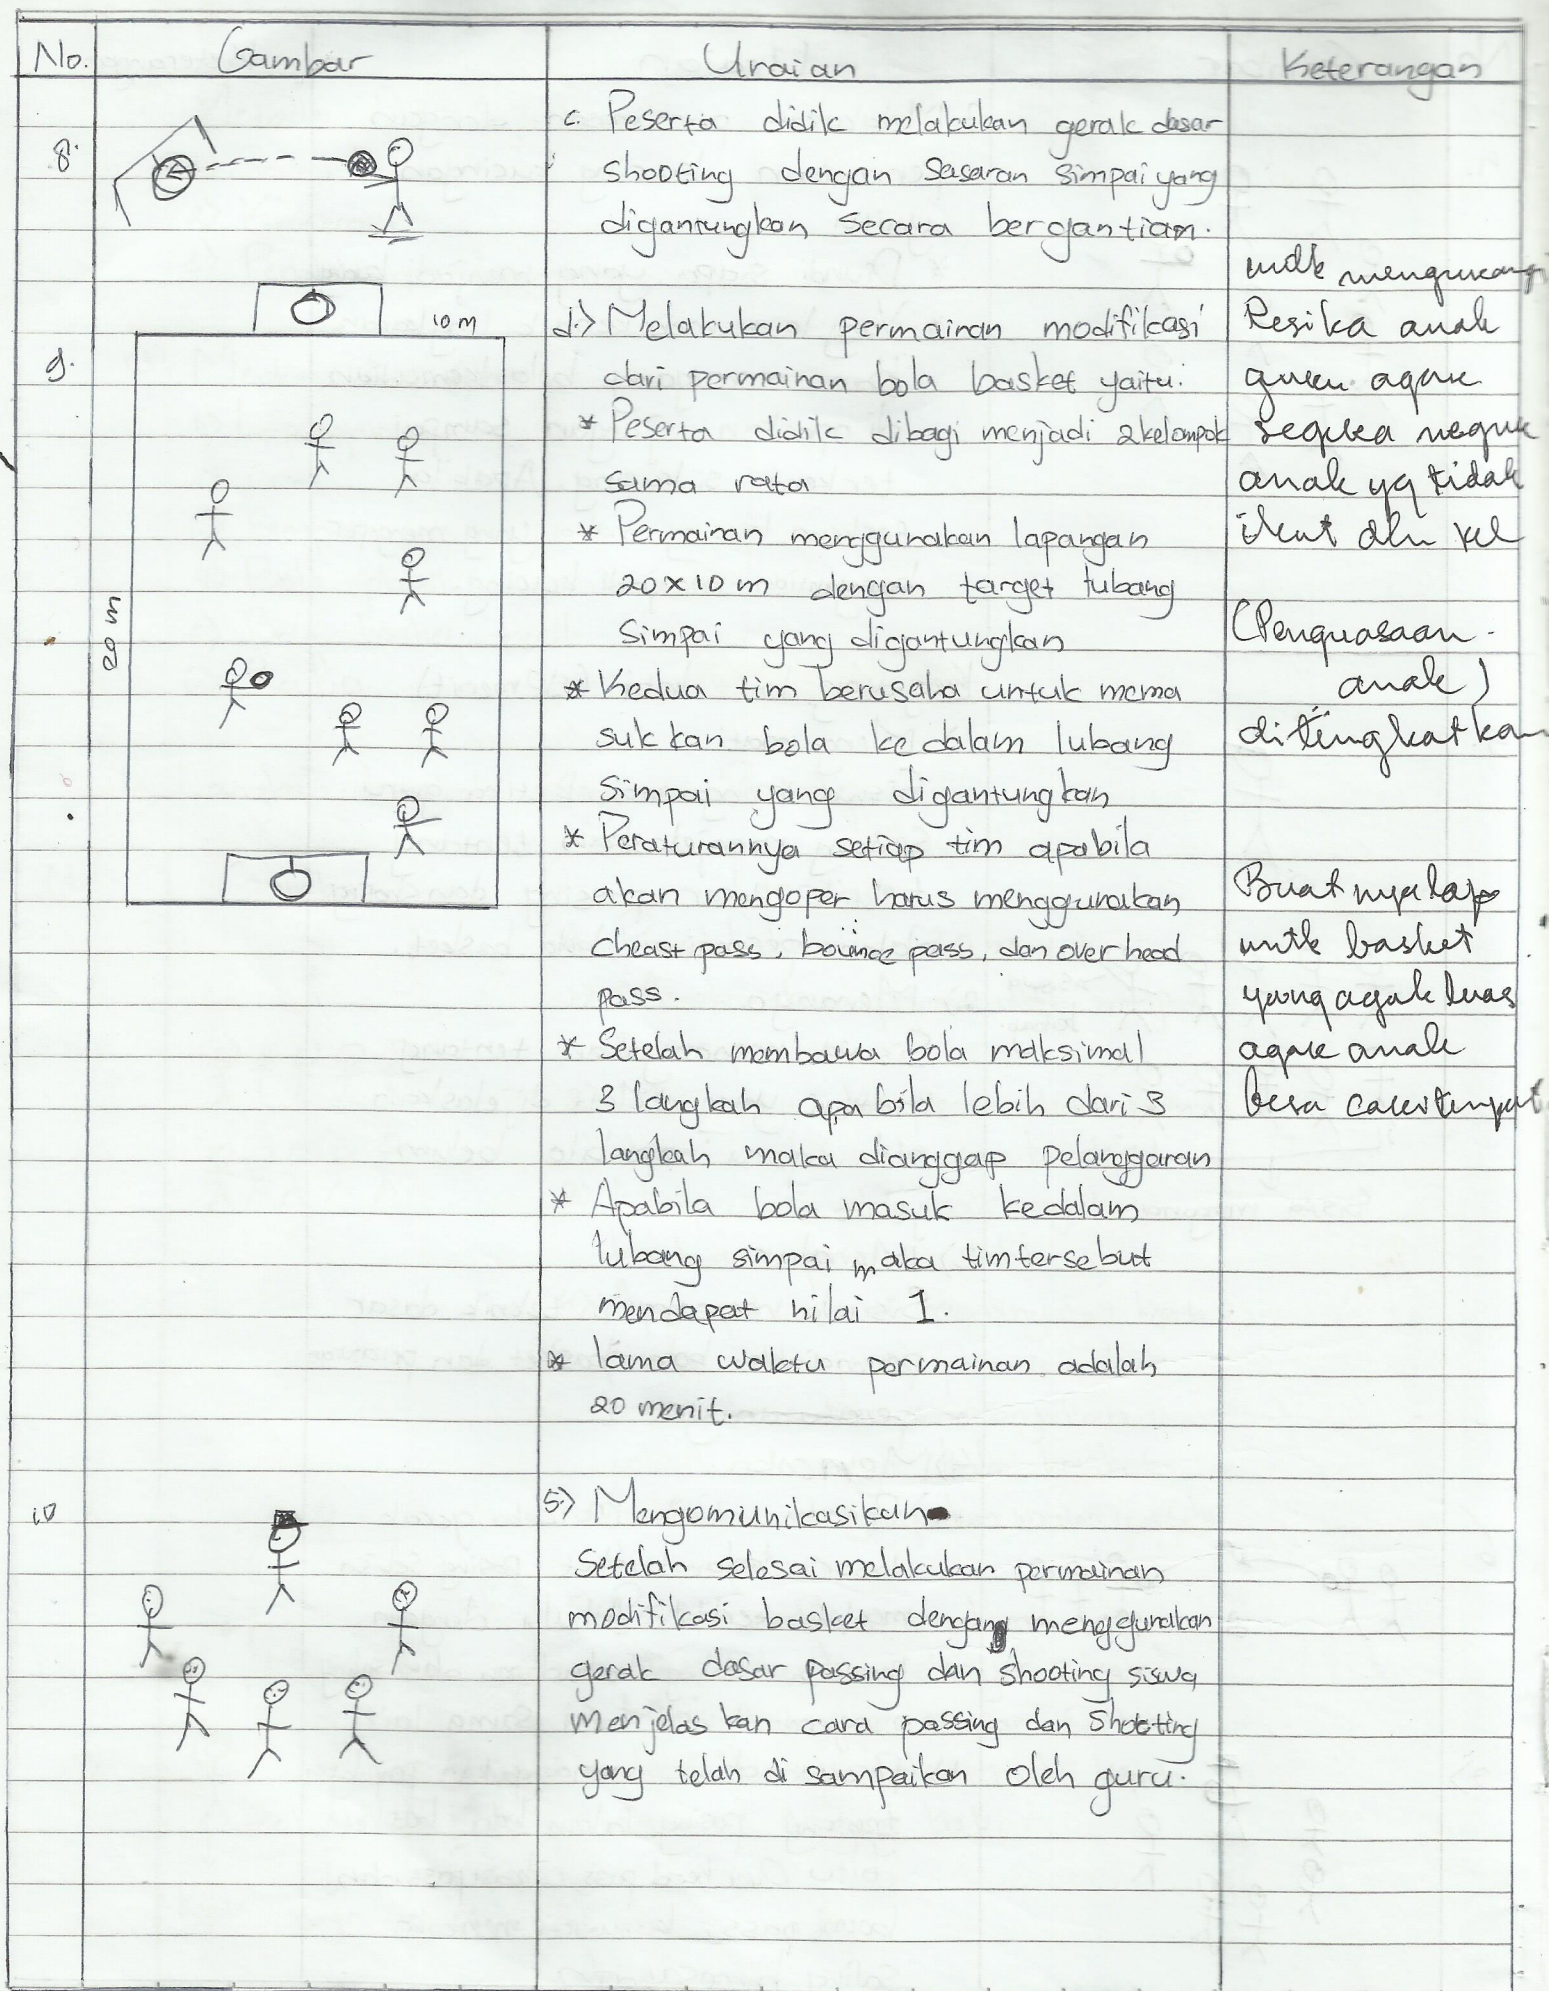 No. Gambar Uraian Keterangan
8. c. Peserta didik melakukan gerak dasar
shooting dengan sasaran simpai yang
digantungkan secara bergantian.
10 m
9. d.) Melakukan permainan modifikasi
dari permainan bola basket yaitu.
* Peserta didik dibagi menjadi 2 kelompok
sama rata
* Permainan menggunakan lapangan
20 x 10 m dengan target lubang
simpai yang digantungkan
20 m
* Kedua tim berusaha untuk mema
sukkan bola kedalam lubang
simpai yang digantungkan
* Peraturannya setiap tim apabila
akan mengoper harus menggunakan
cheast pass, bounce pass, dan over head
pass.
* Setelah membawa bola maksimal
3 langkah apabila lebih dari 3
langkah maka dianggap pelanggaran
* Apabila bola masuk kedalam
lubang simpai maka tim tersebut
mendapat nilai 1.
* lama waktu permainan adalah
20 menit.
untk mengurangi
Resika anak
guru agar
segera negur
anak yg tidak
ikut dlm kel
(Penguasaan
anak)
ditingkatkan
Buatnya lap
untk basket
yang agak luas
agar anak
besa cari tempat
10 5.) Mengomunikasikan
Setelah selesai melakukan permainan
modifikasi basket dengan menggunakan
gerak dasar passing dan shooting siswa
menjelaskan cara passing dan shooting
yang telah di sampaikan oleh guru.